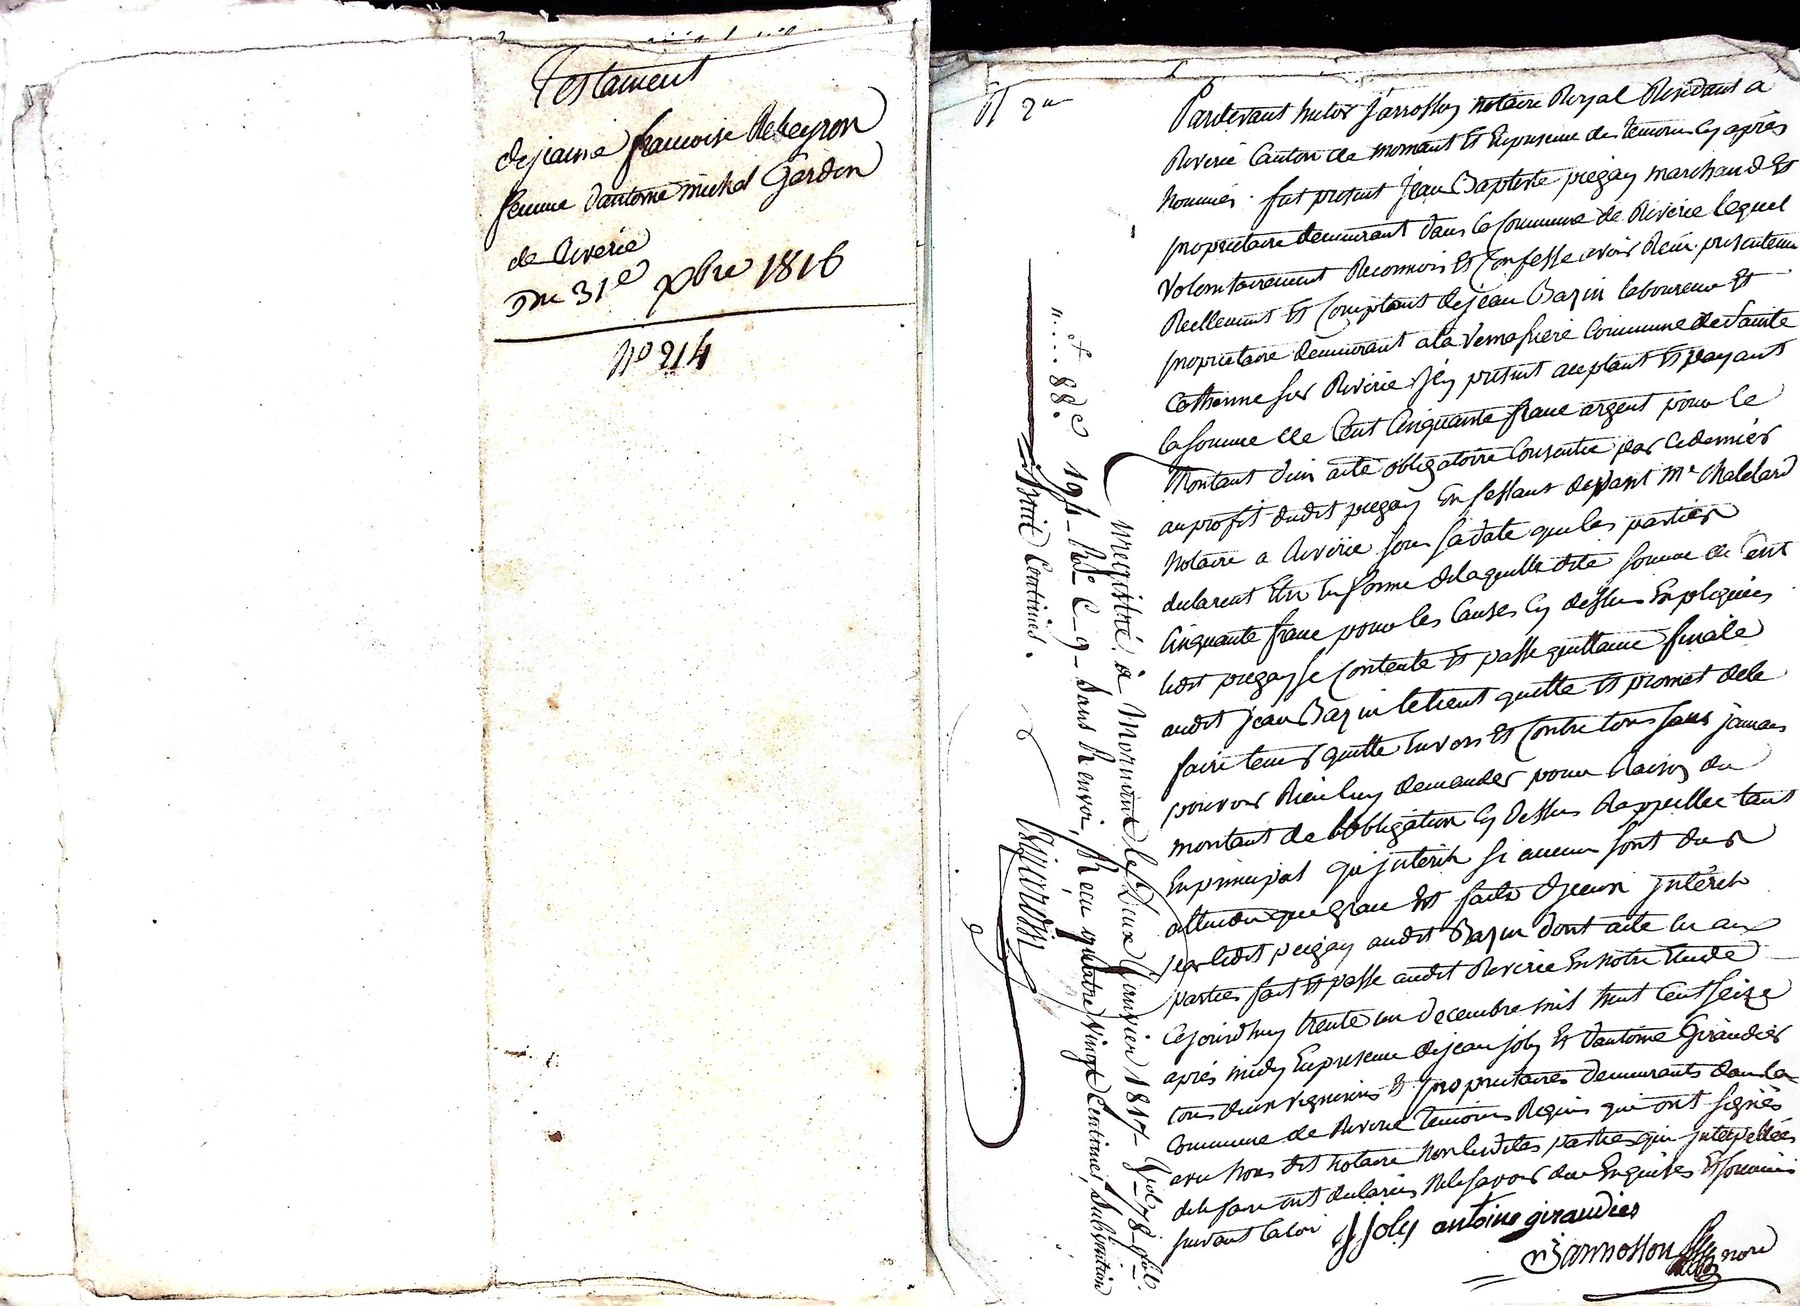 Testament
de jeanne francoise Rebeyron
femme d'antoine michel Gardon
de Riverie
Du 31e xbre 1816
No 214
2
Pardevant nictor jarrosson notaire Royal Residant a
Riverie Canton de mornant Et En presence des temoins cy après
Nommés. fut present jean Baptiste piegay marchand Et
proprietaire demeurant dans la Commune de Riverie lequel
volontairement Reconnois Et Confesse avoir Reçu presentement
Reellement Et Comptant de jean Bazin laboureur Et
proprietaire demeurant a la Commune de Sainte
Catherine sur Riverie icy present acceptant Et payant
la somme de Cent Cinquante franc argent pour le
Montant d'un acte obligatoire Consentie par ce dernier
au profit dudit piegay Devant Me Chalelard
Notaire a Riverie sous sa date que les parties
declarent Etre En forme de laquelle dite somme de Cent
Cinquante franc pour les Causes Cy dessus Expliquées
ledit piegay se Contente Et passe quittance finale
audit jean Bazin le tient quitte Et promet de le
faire tenir quitte Envers Et Contre tous sans jamais
pouvoir Rien luy demander pour Raison du
montant de l'obligation Cy Dessus Rappellée tant
En principal qu'interets si aucun sont dus
attendu que grace Est faite d'jceux interets
par ledit piegay audit Bazin dont acte lu aux
parties fait Et passe audit Riverie En notre Etude
Cejourd'huy trente un Decembre mil huit Cent Seize
après midy En presence de jean joly Et d'antoine Giraudier
tous deux vignerons Et proprietaires demeurants dans la
Commune de Riverie temoins Requis qui ont signés
avec Nous dit notaire non lesdites parties qui interpellées
de le faire ont declarées Ne le savoir de ce Enquises Et sommées
suivant la loi
J joly antoine giraudier
n jarrosson nore
Enregistré à Mornant le Deux Janvier 1817 fol. 78 Vol.
194 Ro C. 9 Sans Renvoi, Reçu quatre vingt Centimes, Subvention
huit Centimes.
n. 88.